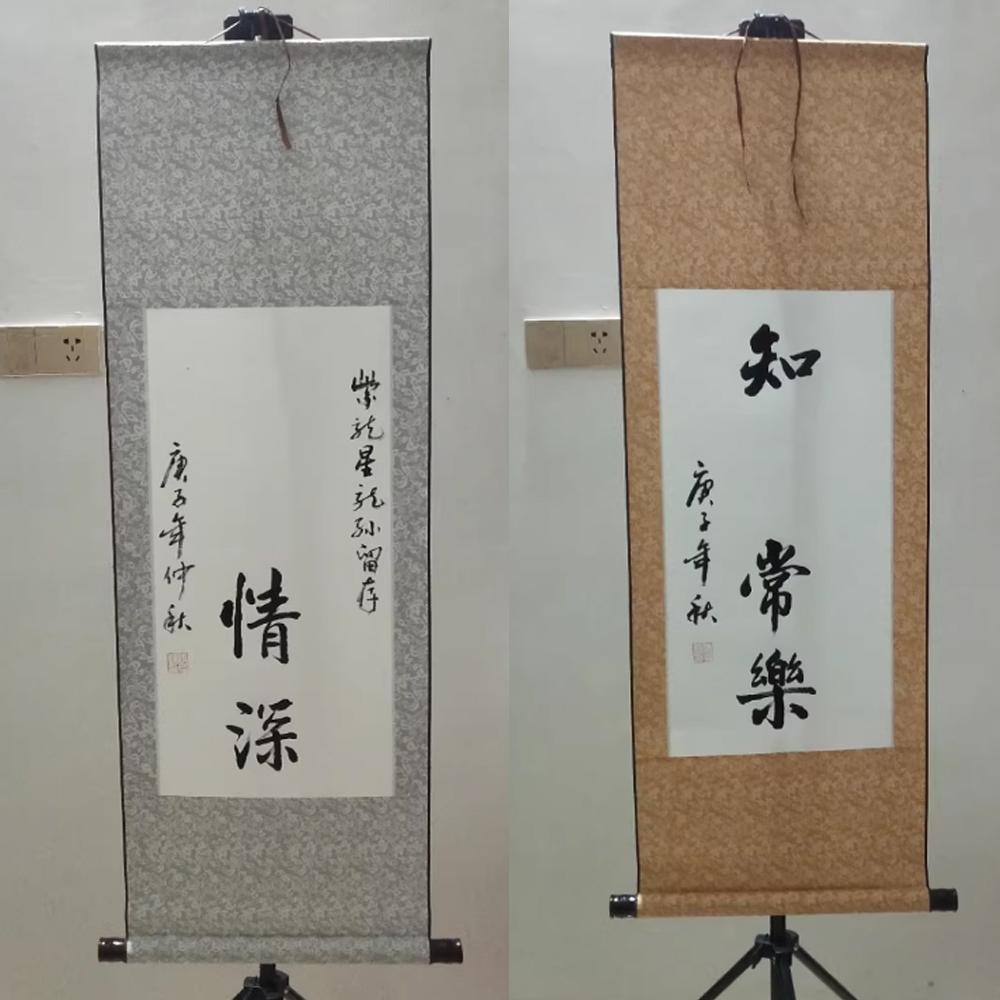 紫龙星龙孙留存
情深
庚子年仲秋
知常樂
庚子年秋